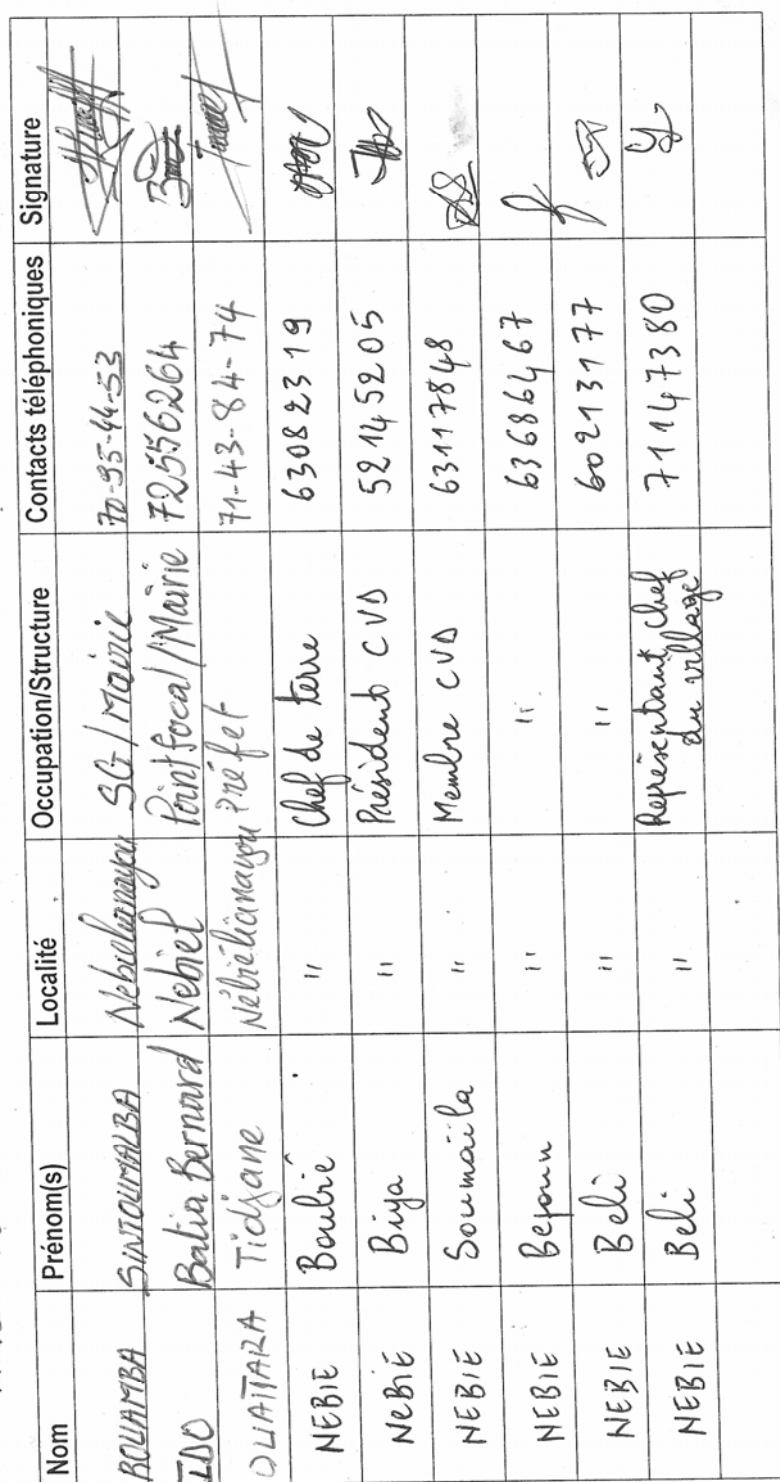 Nom Prénom(s) Localité Occupation/Structure Contacts téléphoniques Signature
ROUAMBA SINTOUMALBA Nebielianayou SG/Mairie 70-95-44-53
IDO Batia Bernard Nebiel Point focal/Mairie 72556264
OUATTARA Tidjane Nébiélianayou Préfet 71-43-84-74
NEBIE Boubié " Chef de terre 63082319
NEBIE Biya " Président CVD 52145205
NEBIE Soumaïla " Membre CVD 63117848
NEBIE " " 63686467
NEBIE Beli " " 60213177
NEBIE Beli " Représentant chef
du village 71147380